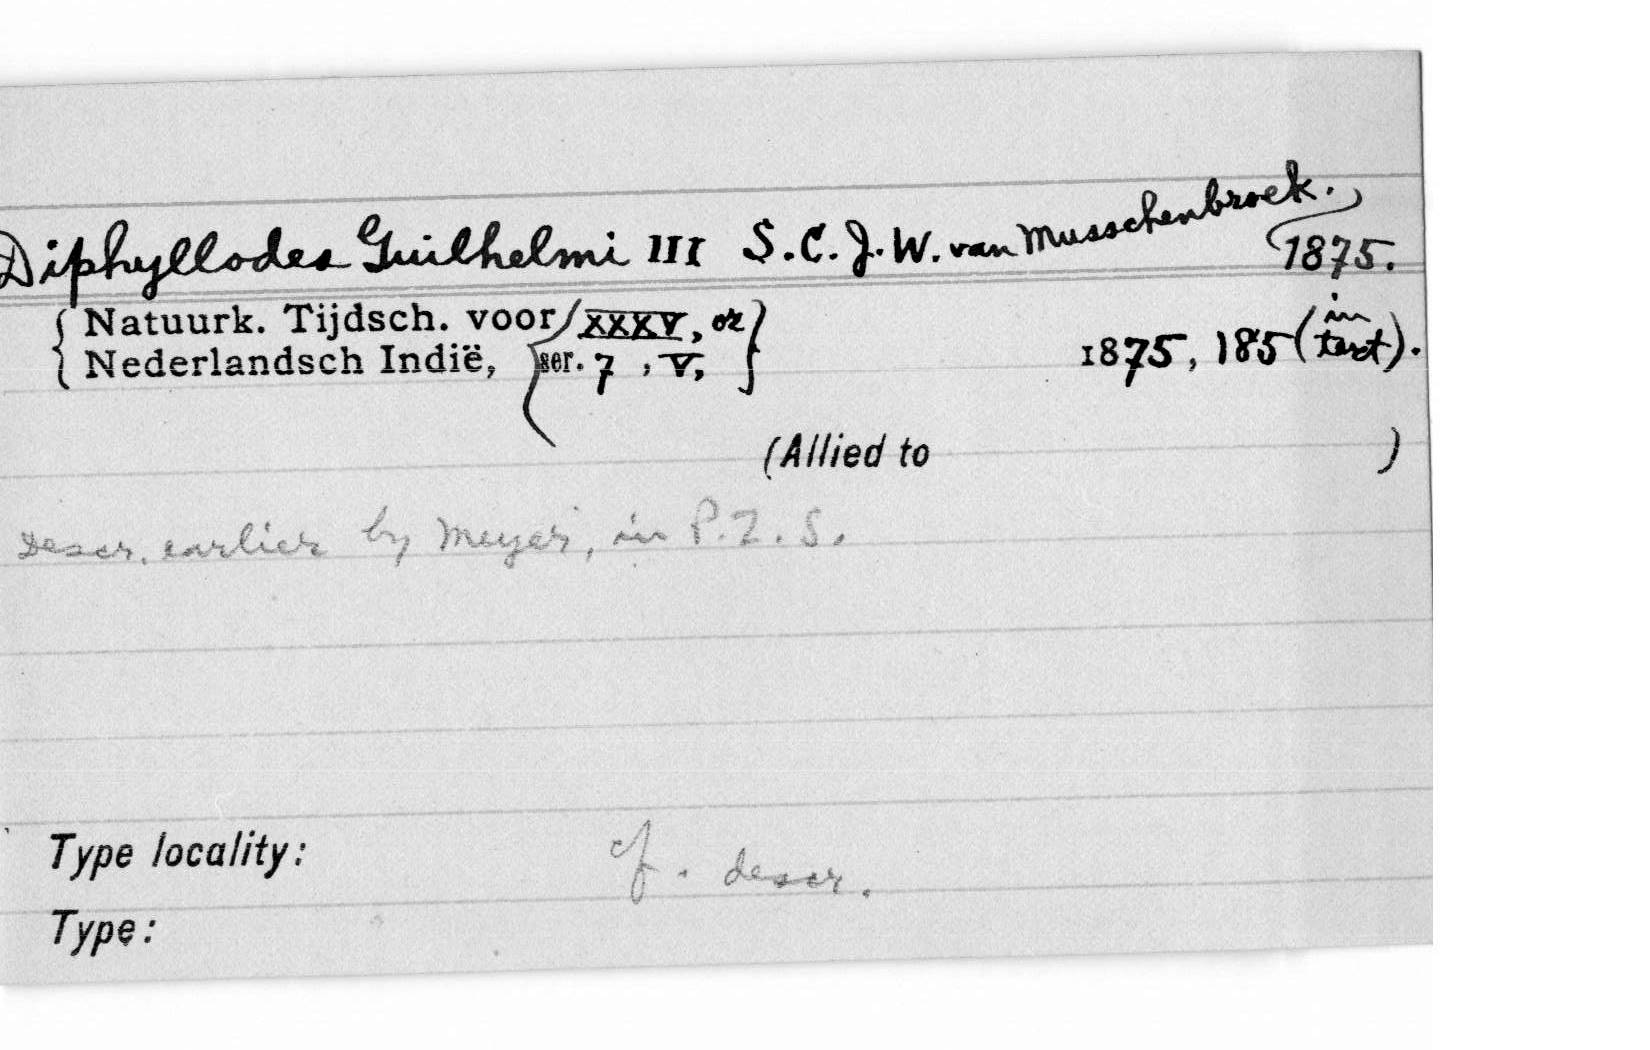 Diphyllodes Guilhelmi III S.C.J.W. van Musschenbroek.
1875.
Natuurk. Tijdsch. voor XXXV, or
Nederlandsch Indië, ser. 7, V, 1875, 185 (in text).
(Allied to )
Descr. earlier by Meyer, in P.Z.S.
Type locality: cf. descr.
Type: